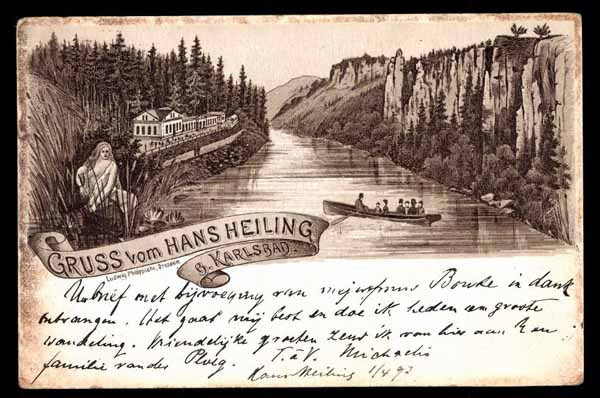 GRUSS vom HANS HEILING
b. KARLSBAD.
Ludwig Philippsohn, Dresden
Uw brief met bijvoeging van mejufvrouw Bouke in dank
ontvangen. Het gaat mij best en doe ik heden een groote
wandeling. Vriendelijke groeten zend ik van hier aan U en
familie van der Ploeg. T. à V. Michaelis
Hans Heiling 1/4 93